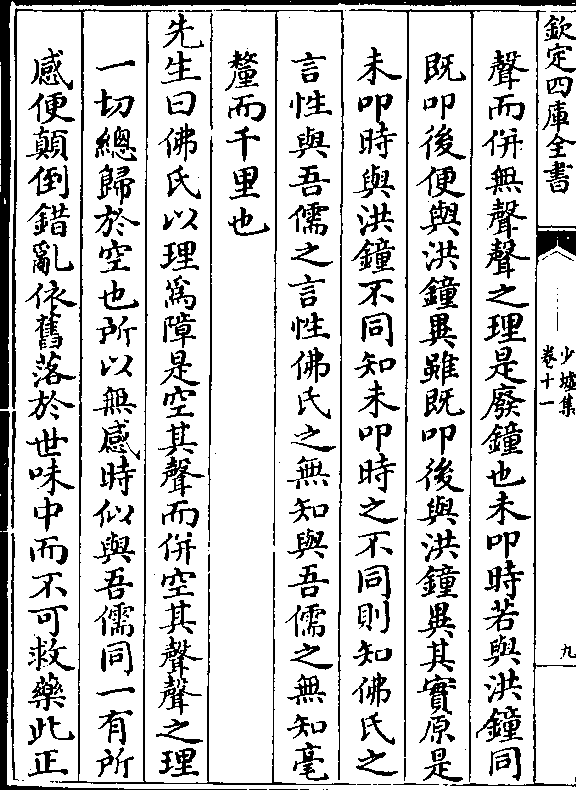 欽定四庫全書
少墟集
卷十一
九
聲而併無聲聲之理是廢鐘也未叩時若與洪鐘同
既叩後便與洪鐘異雖既叩後與洪鐘異其實原是
未叩時與洪鐘不同知未叩時之不同則知佛氏之
言性與吾儒之言性佛氏之無知與吾儒之無知毫
釐而千里也
先生曰佛氏以理為障是空其聲而併空其聲聲之理
一切總歸於空也所以無感時似與吾儒同一有所
感便顛倒錯亂依舊落於世味中而不可救藥此正